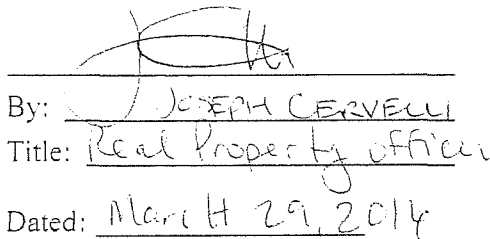 By: JOSEPH CERVELLI
Title: Real Property officer
Dated: MarcH 29, 2014